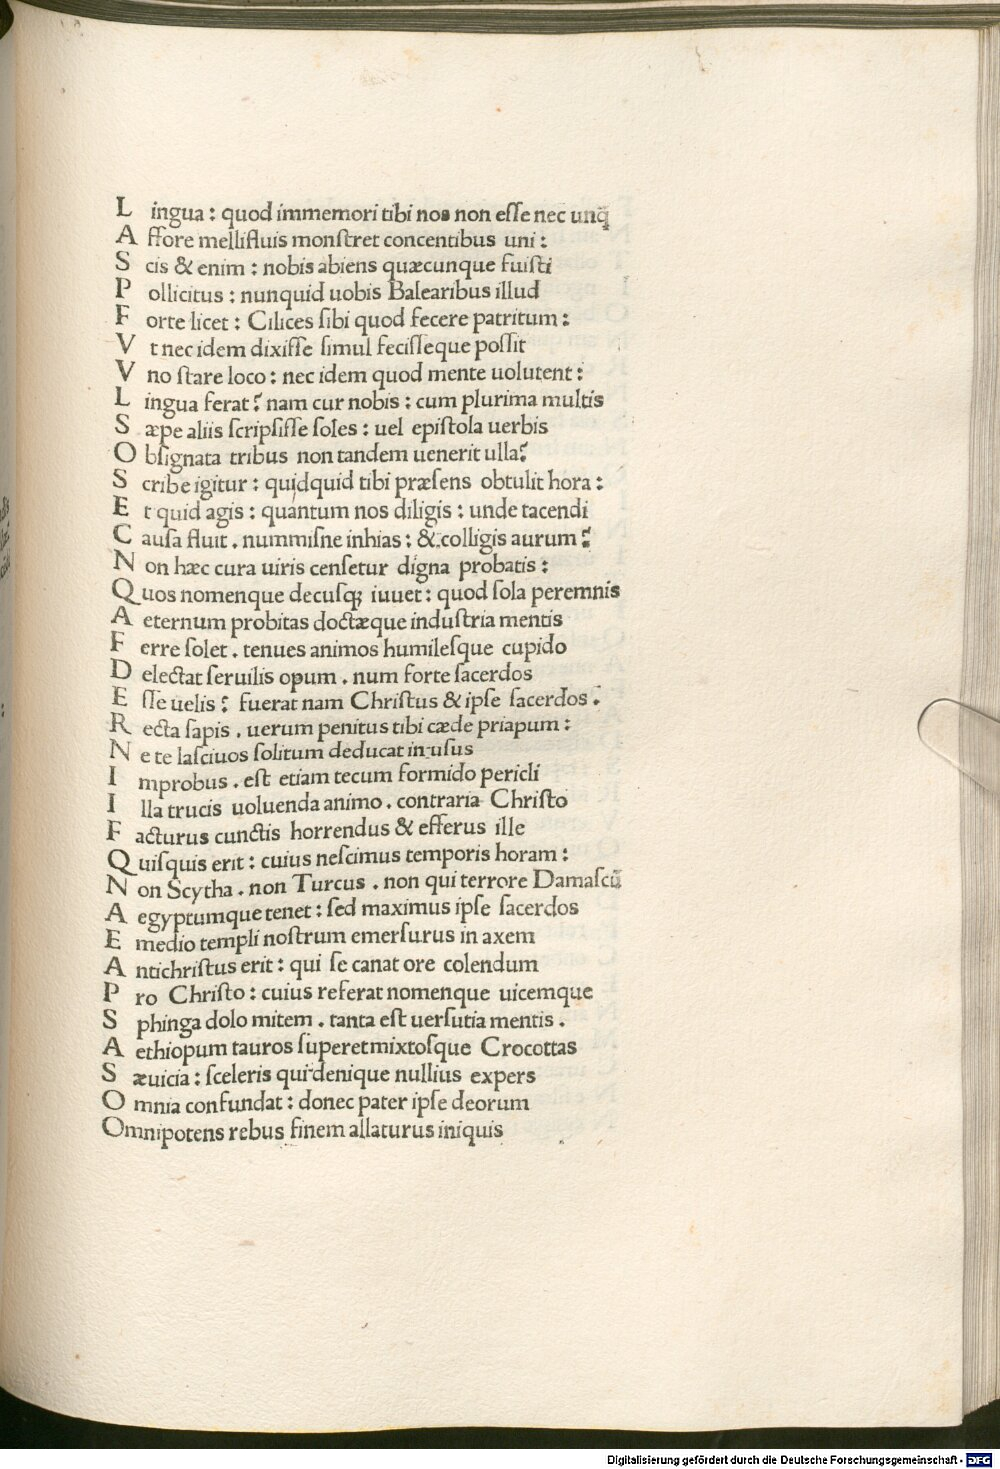 Lingua : quod immemori tibi nos non esse nec unq̃
Affore mellifluis monstret concentibus uni :
Scis & enim : nobis abiens quæcunque fuisti
Pollicitus : nunquid uobis Balearibus illud
Forte licet : Cilices sibi quod fecere patritum :
Vt nec idem dixisse simul fecisseque possit
Vno stare loco : nec idem quod mente uolutent :
Lingua ferat ? nam cur nobis : cum plurima multis
Sæpe aliis scripsisse soles : uel epistola uerbis
Obsignata tribus non tandem uenerit ulla ?
Scribe igitur : quidquid tibi præsens obtulit hora :
Et quid agis : quantum nos diligis : unde tacendi
Causa fluit . nummisne inhias : & colligis aurum ?
Non hæc cura uiris censetur digna probatis :
Quos nomenque decusq; iuuet : quod sola peremnis
Aeternum probitas doctæque industria mentis
Ferre solet . tenues animos humilesque cupido
Delectat seruilis opum . num forte sacerdos
Esse uelis ? fuerat nam Christus & ipse sacerdos .
Recta sapis . uerum penitus tibi cæde priapum :
Ne te lasciuos solitum deducat in usus
Improbus . est etiam tecum formido pericli
Illa trucis uoluenda animo . contraria Christo
Facturus cunctis horrendus & efferus ille
Quisquis erit : cuius nescimus temporis horam :
Non Scytha . non Turcus . non qui terrore Damascū
Aegyptumque tenet : sed maximus ipse sacerdos
E medio templi nostrum emersurus in axem
Antichristus erit : qui se canat ore colendum
Pro Christo : cuius referat nomenque uicemque
Sphinga dolo mitem . tanta est uersutia mentis .
Aethiopum tauros superet mixtosque Crocottas
Sæuicia : sceleris qui denique nullius expers
Omnia confundat : donec pater ipse deorum
Omnipotens rebus finem allaturus iniquis
Digitalisierung gefördert durch die Deutsche Forschungsgemeinschaft - DFG